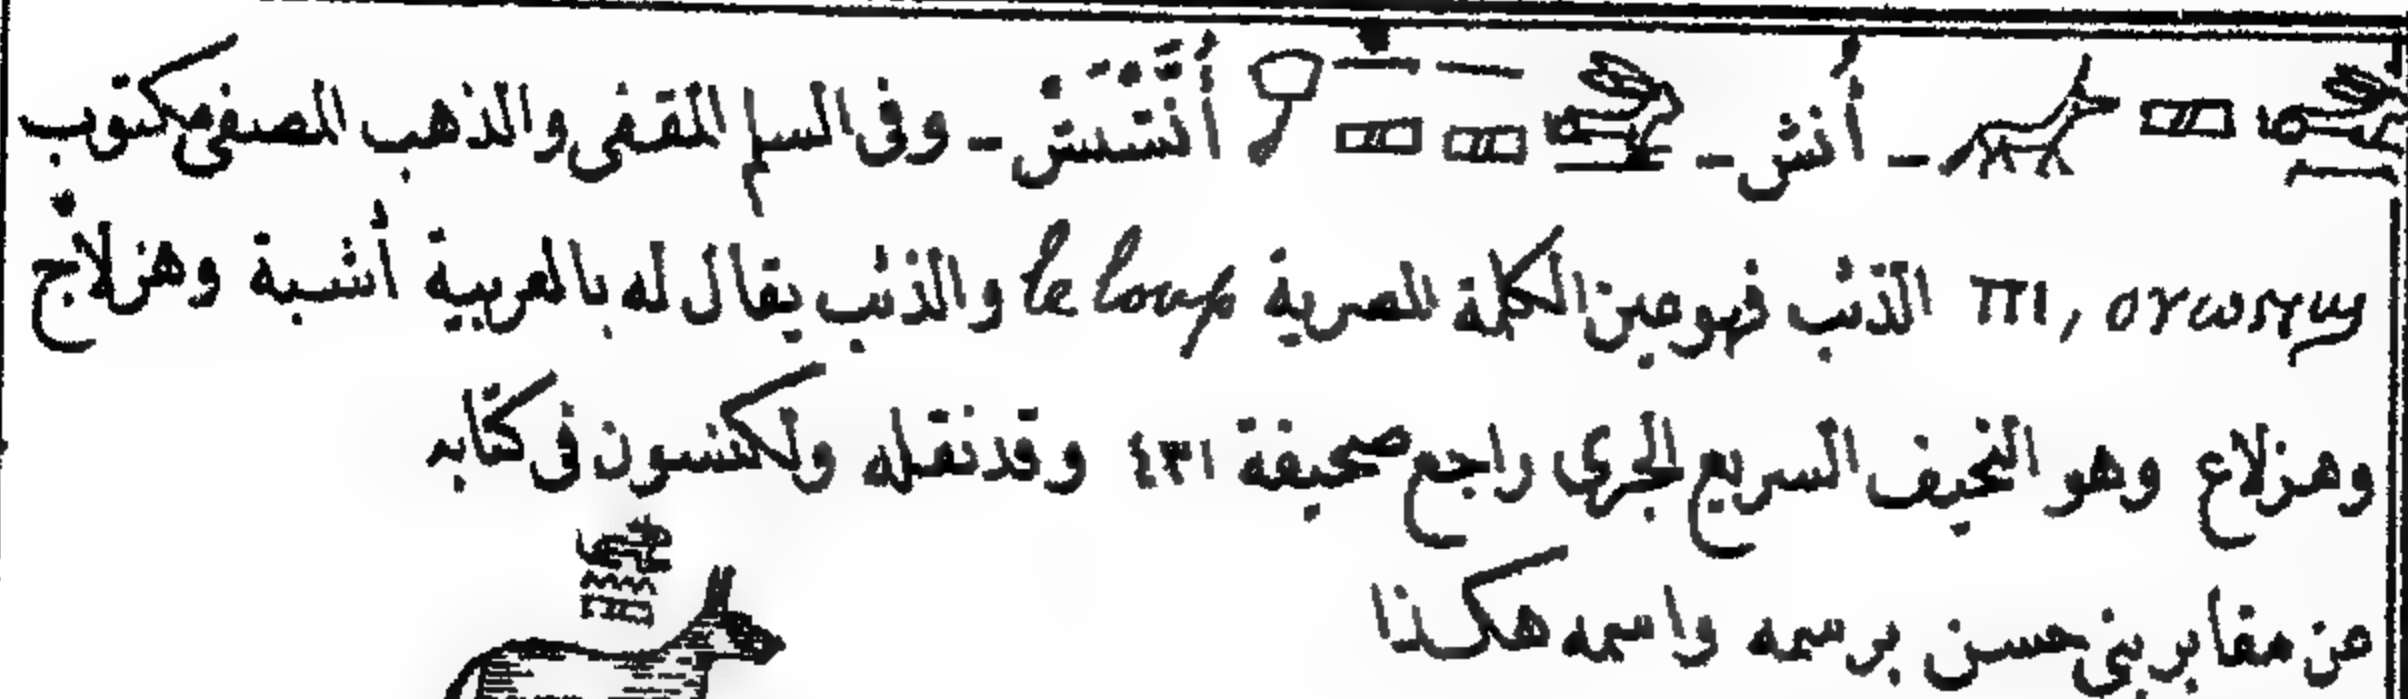 أُنش - أُنَّشَشْ - وفى السلم المقفى والذهب المصفى مكتوب
ⲡⲓ, ⲟⲩⲱⲛϣ الذئب فهو عين الكلمة المصرية le loup والذئب يقال له بالعربية أشبة وهزلاج
وهزلاع وهو النحيف السريع الجرى راجع صحيفة ٤٣١ وقد نقله ولكنسون فى كتابه
من مقابر بنى حسن برسمه واسمه هكذا